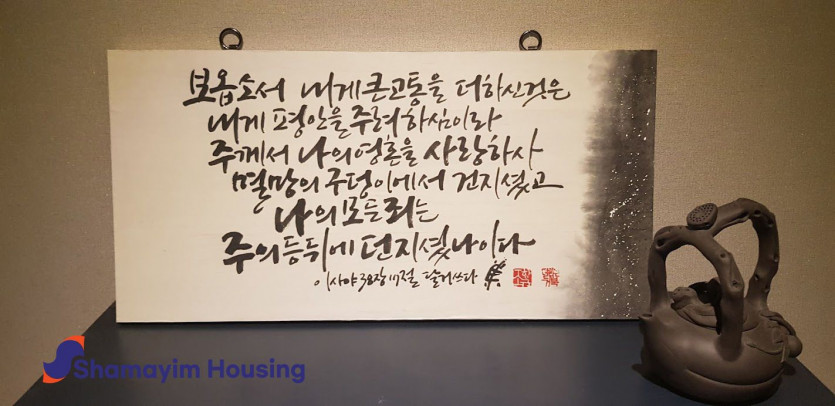 보옵소서 내게 큰 고통을 더하신 것은
내게 평안을 주려 하심이라
주께서 나의 영혼을 사랑하사
멸망의 구덩이에서 건지셨고
나의 모든 죄는
주의 등뒤에 던지셨나이다
이사야 38장 17절
Shamayim Housing